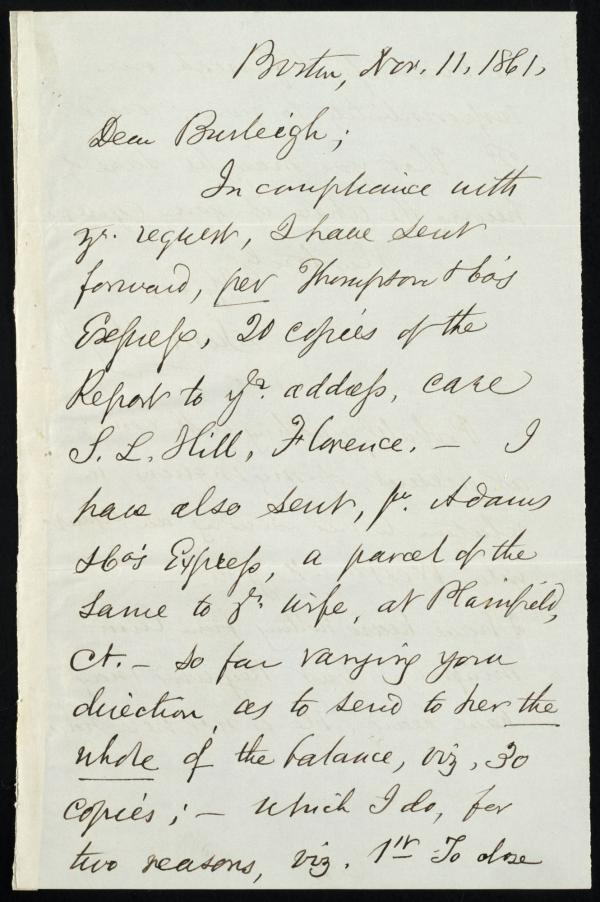 Boston, Nov. 11, 1861.
Dear Burleigh;
In compliance with
yr. request, I have sent
forward, per Thompson & Co's
Express, 20 copies of the
Report to yr. address, care
S. L. Hill, Florence. — I
have also sent, pr. Adams
& Co's Express, a parcel of the
same to yr. wife, at Plainfield,
Ct. — so far varying your
direction, as to send to her the
whole of the balance, viz, 30
copies; — which I do, for
two reasons, viz. 1st To close